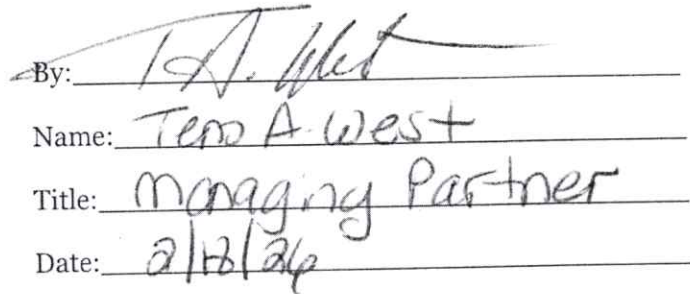 By: T.A. West
Name: Tero A. West
Title: Managing Partner
Date: